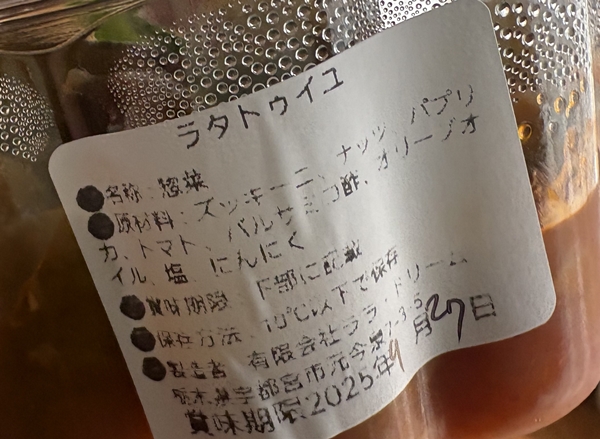 ラタトゥイユ
●名称：惣菜
●原材料：ズッキーニ、ナッツ、パプリ
カ、トマト、バルサミコ酢、オリーブオ
イル、塩、にんにく
●賞味期限：下部に記載
●保存方法：10℃以下で保存
●製造者：有限会社ララ・ドリーム
栃木県宇都宮市元今泉7-3-5
賞味期限2025年9月27日